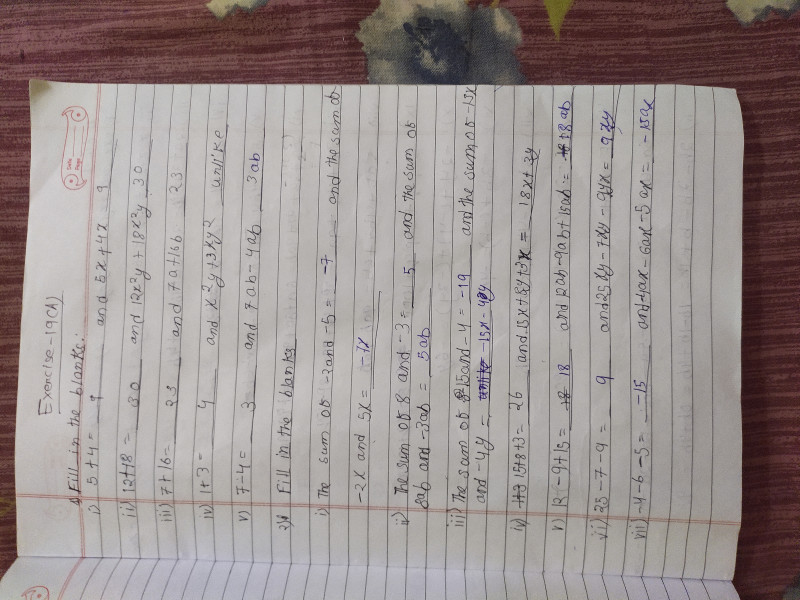 Exercise-19(A)
1. Fill in the blanks:
i) 5+4 = 9 and 5x+4x 9
ii) 12+18 = 30 and 12x²y + 18x²y 30
iii) 7+16 = 23 and 7a+16b 23
iv) 1+3 = 4 and x²y+3xy² unlike
v) 7-4 = 3 and 7ab-4ab 3ab
2) Fill in the blanks
i) The sum of -2 and -5 = -7 and the sum of
-2x and 5x = -7x
ii) The sum of 8 and -3 = 5 and the sum of
8ab and -3ab = 5ab
iii) The sum of 15 and -4 = -19 and the sum of -15x
and -4y = unlike -15x-4y
iv) 15+8+3 = 26 and 15x+8y+3x = 18x+3y
v) 12-9+15 = 18 and 12ab-9ab+15ab = 18ab
vi) 25-7-9 = 9 and 25xy-7xy-9yx = 9xy
vii) -4-6-5 = -15 and -4ax-6ax-5ax = -15ax